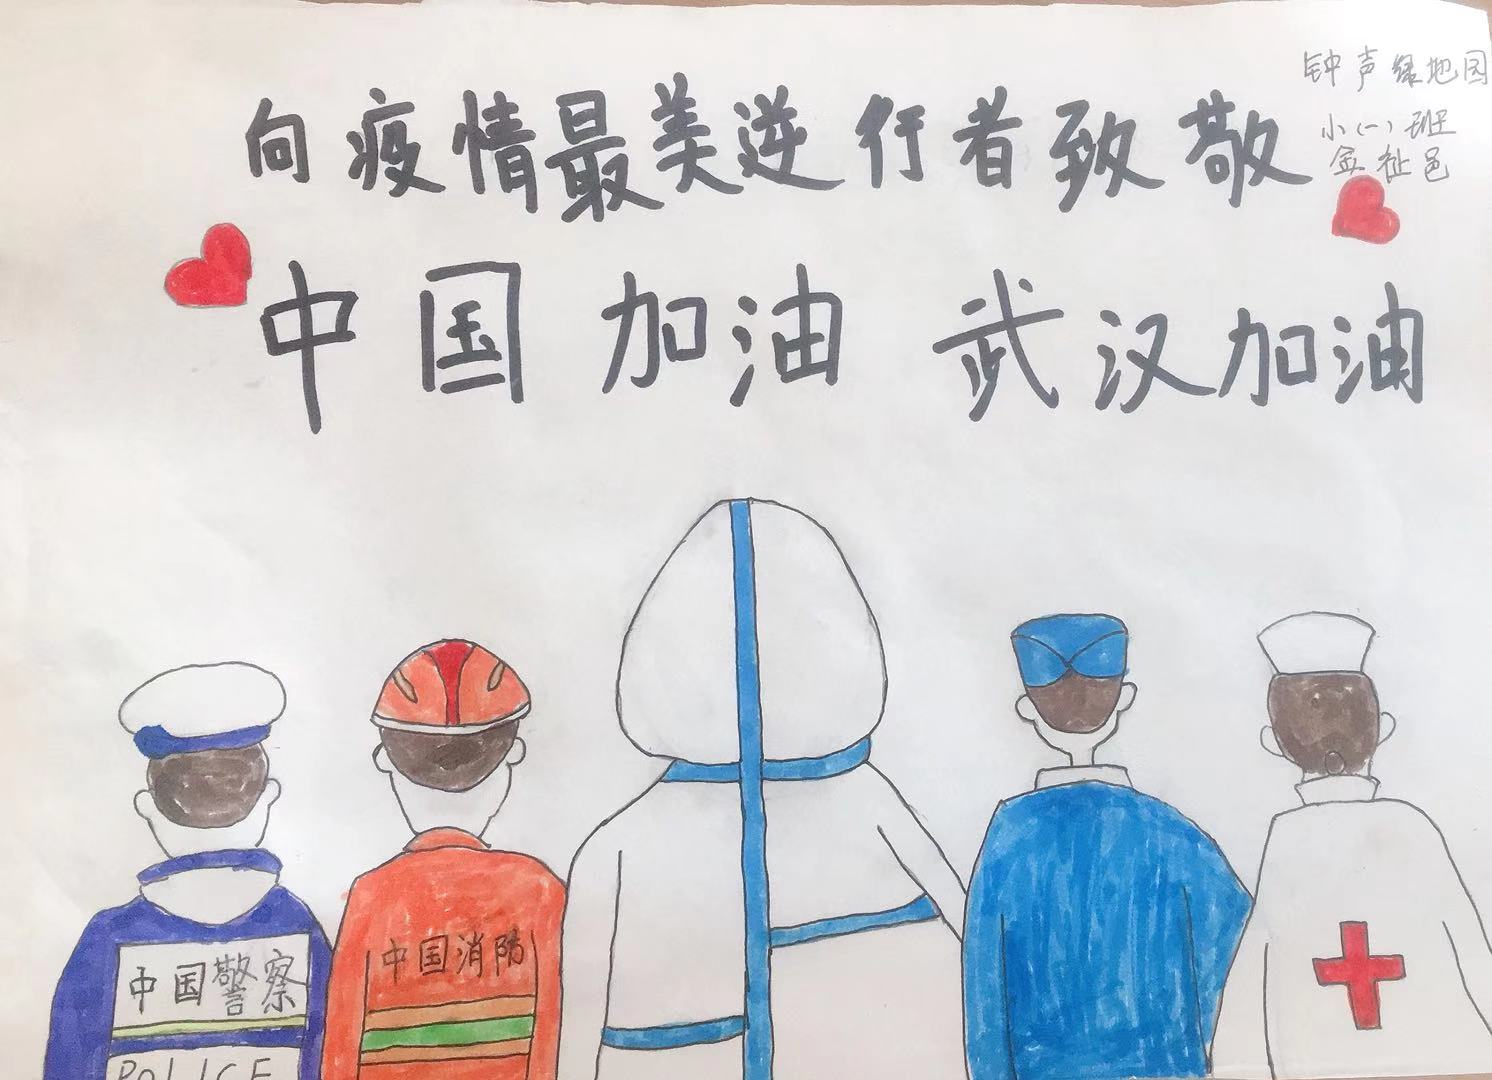 钟声绿地园
小(一)班
金祉邑
向疫情最美逆行者致敬
中国加油 武汉加油
中国警察
POLICE
中国消防